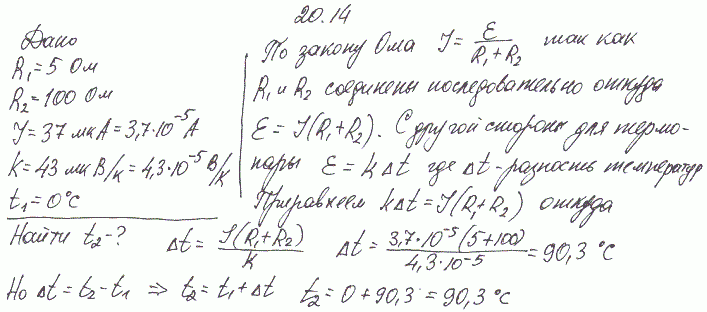 20.14
Дано
R₁=5 Ом
R₂=100 Ом
J=37 мкА=3,7·10⁻⁵А
K=43 мкВ/к=4,3·10⁻⁵ В/К
t₁=0°С
Найти t₂-?
По закону Ома J= ε/(R₁+R₂) так как
R₁ и R₂ соединены последовательно откуда
ε=J(R₁+R₂). С другой стороны для термо-
пары ε=kΔt где Δt-разность температур
Приравняем kΔt=J(R₁+R₂) откуда
Δt= J(R₁+R₂)/K Δt= 3,7·10⁻⁵(5+100)/4,3·10⁻⁵ =90,3 °С
Но Δt=t₂-t₁ ⇒ t₂=t₁+Δt t₂=0+90,3=90,3°С